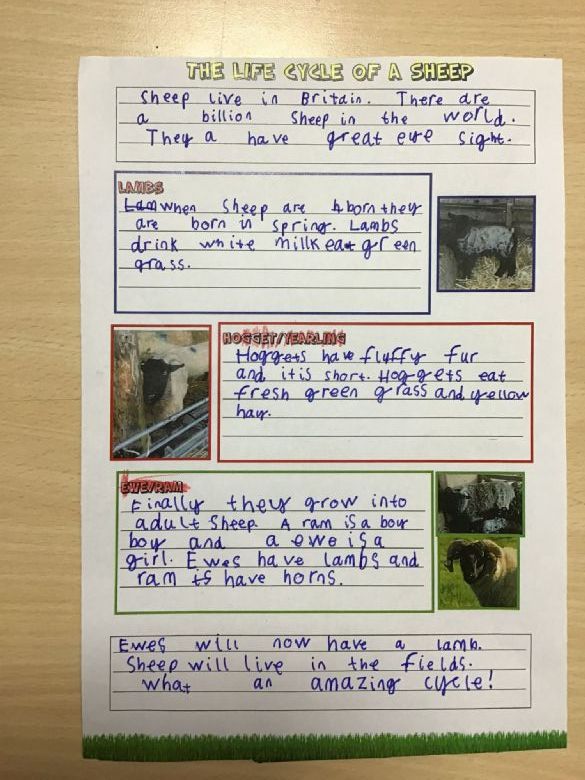 THE LIFE CYCLE OF A SHEEP
Sheep live in Britain. There are
a billion Sheep in the world.
They a have great eye sight.
LAMBS
Lam when Sheep are b born they
are born in spring. Lambs
drink white milk eat green
grass.
HOGGET/YEARLING
Hoggets have fluffy fur
and it is short. Hoggets eat
fresh green grass and yellow
hay.
EWE/RAM
Finally they grow into
adult Sheep. A ram is a boy
boy and a ewe is a
girl. Ewes have lambs and
ram is have horns.
Ewes will now have a lamb.
Sheep will live in the fields.
What an amazing cycle!